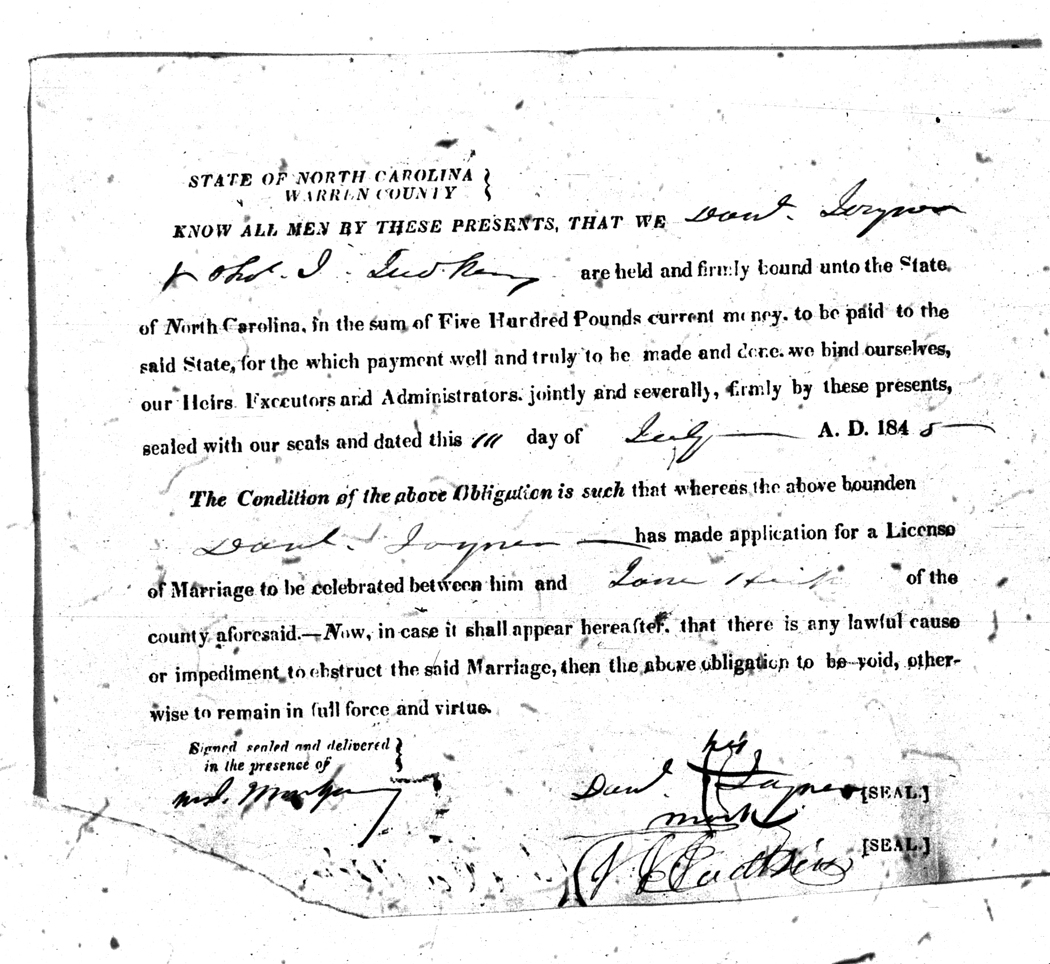 STATE OF NORTH CAROLINA }
WARREN COUNTY
KNOW ALL MEN BY THESE PRESENTS, THAT WE Danl. Joyner
& Thos. J. Judkins are held and firmly bound unto the State
of North Carolina, in the sum of Five Hundred Pounds current money, to be paid to the
said State, for the which payment well and truly to be made and done, we bind ourselves,
our Heirs Executors and Administrators, jointly and severally, firmly by these presents,
sealed with our seals and dated this day of July A. D. 184
The Condition of the above Obligation is such that whereas the above bounden
Danl. Joyner has made application for a License
of Marriage to be celebrated between him and Jane of the
county aforesaid.—Now, in case it shall appear hereafter, that there is any lawful cause
or impediment to obstruct the said Marriage, then the above obligation to be void, other-
wise to remain in full force and virtue.
Signed sealed and delivered }
in the presence of
his
Danl. Joyner [SEAL.]
mark
Judkins [SEAL.]